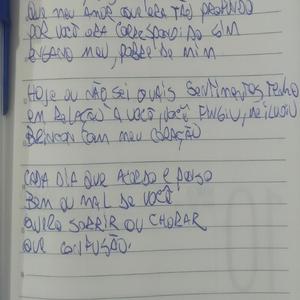 QUE MEU AMOR QUE ERA TÃO PROFUNDO
POR VOCÊ ERA CORRESPONDIDO SIM
ENGANO MEU, POBRE DE MIM
HOJE EU NÃO SEI QUAIS SENTIMENTOS TENHO
EM RELAÇÃO A VOCÊ, VOCÊ FINGIU, ME ILUDIU
BRINCOU COM MEU CORAÇÃO
CADA DIA QUE ACORDO E PENSO
BEM OU MAL DE VOCÊ
QUERO SORRIR OU CHORAR
QUE CONFUSÃO.